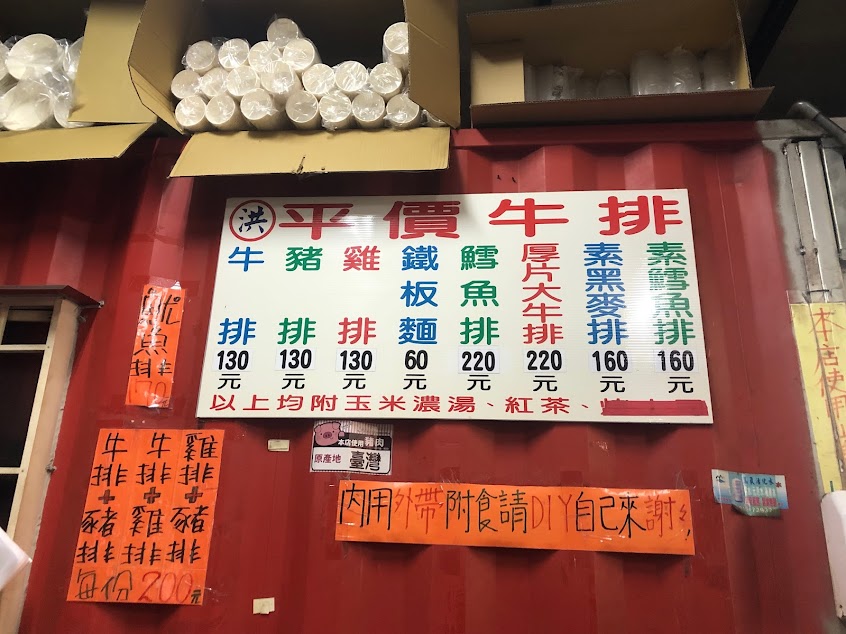 洪 平價牛排
牛排 130元
豬排 130元
雞排 130元
鐵板麵 60元
鱈魚排 220元
厚片大牛排 220元
素黑麥排 160元
素鱈魚排 160元
以上均附玉米濃湯、紅茶、
魚排
牛排+豬排
牛排+雞排
雞排+豬排
每份200元
本店使用豬肉
原產地 臺灣
內用外帶附食請DIY自己來謝謝
本店使用